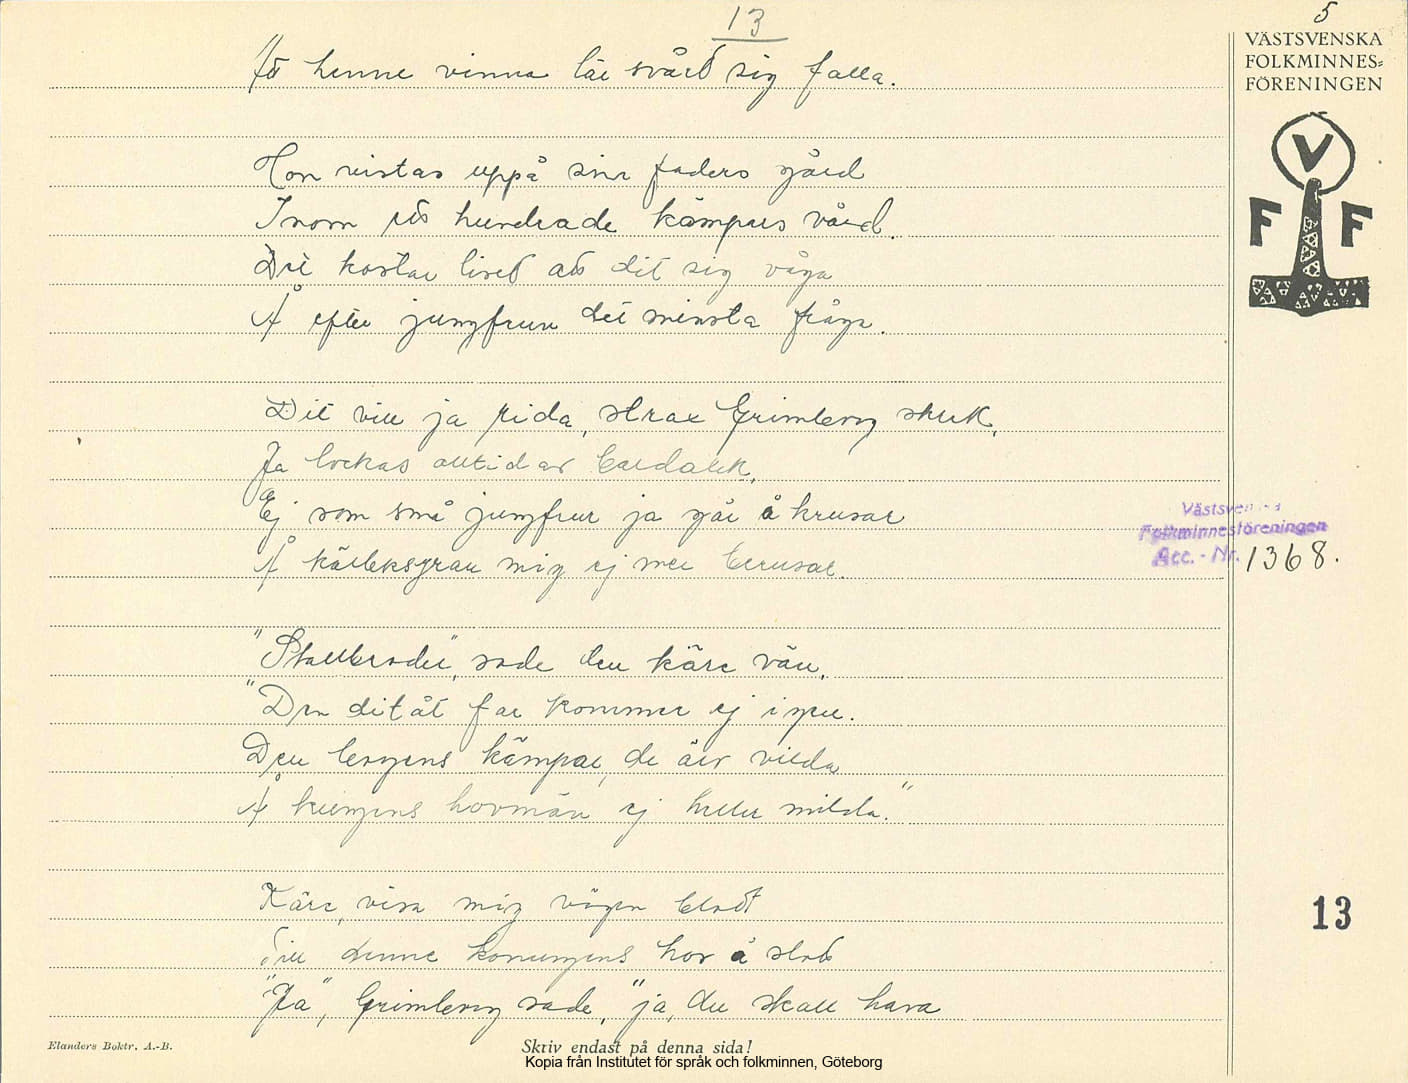 13
5
VÄSTSVENSKA
FOLKMINNES=
FÖRENINGEN
V
F F
henne vinna lär svårt sig falla.
Hon vistas uppå sin faders gård
Inom hundrade kämpars vård.
Det kostar livet att dit sig våga
Å efter jungfrun det minsta fråga.
Dit vill ja rida, strax Grimborg skrek,
Ja lockas alltid av bardalek,
Ej som små jungfrur ja går å krusar
Å kärleksgran mig ej mer berusar.
"Stallbroder", sade den käre vän,
"Den ditåt far kommer ej igen.
Den borgens kämpar, de äro vilda
Å kungens hovmän ej heller milda."
Käre, visa mig vägen blott
Till denne konungens hov å slott
"Ja", Grimborg sade, "ja, du skall hava
Västsvenska
Folkminnesföreningen
Acc. - Nr. 1368.
13
Elanders Boktr. A.-B.
Skriv endast på denna sida!
Kopia från Institutet för språk och folkminnen, Göteborg